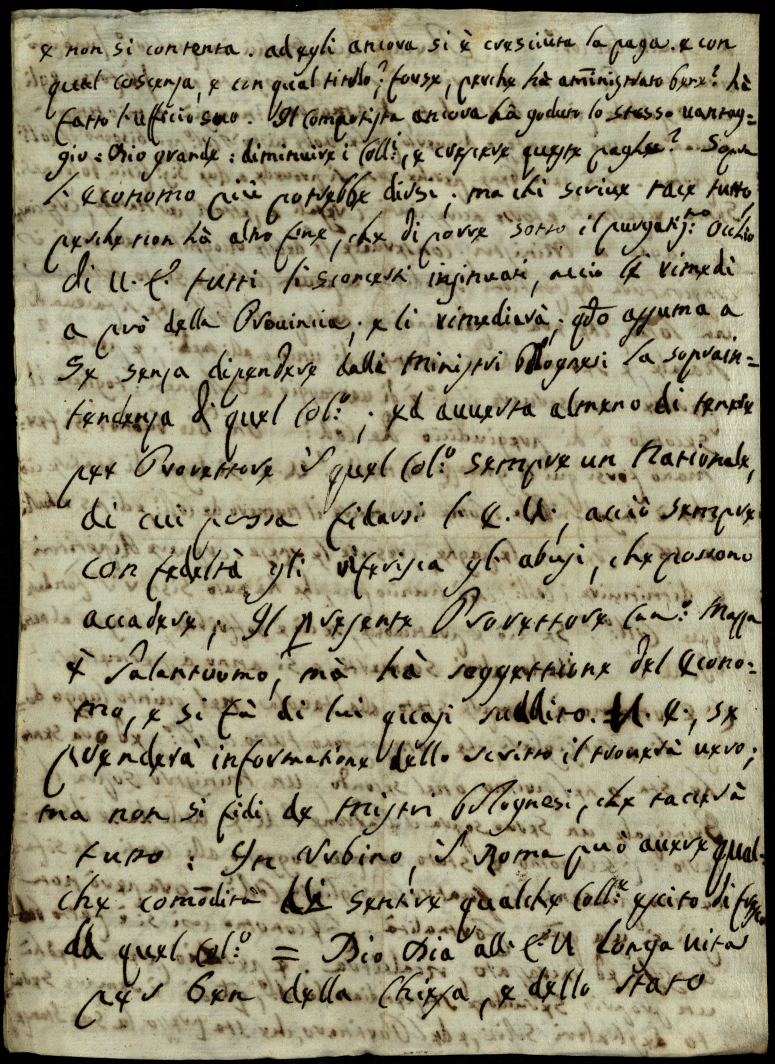 e non si contenta. ad egli ancora si è cresciuta la paga. e con
qual coscenza, e con qual titolo? forse, perche hà am̃inistrato bene? hà
fatto l'ufficio suo. Il computista ancora hà goduto lo stesso uantag=
gio = Dio grande: diminuire i Coll.i, e crescere queste paghe? Sopra
l'economo più potrebbe dirsi; ma chi scriue tace tutto,
perche non hà altro fine, che di porre sotto il purgatis.mo occhio
di U. E. tutti li sconcerti insinuati, acciò le rimedi
a prò della Prouincia; e li rimedierà, qdo assuma a
se senza dipendere dalli Ministri Bolognesi la soprain=
tendenza di quel Col.o; ed auuerta almeno di tenere
per Prorettore quel Col.o sempre un Nationale,
di cui possa fidarsi l'E. U., acciò sempre
con fedeltà gli riferisca gl'abusi, che possono
accadere; Il presente Prorettore Can.o Massa
è Galantuomo, mà hà soggettione del Econo=
mo, e si fà di lui quasi suddito. U. E., se
prenderà informatione dello scritto il trouerà uero;
ma non si fidi de Mistri Bolognesi, che tacerà
tutto: In Urbino, Roma può auere qual=
che com̃odità di sentire qualche Coll.e escito di fresco
da quel Col.o = Dio Dia all' E. U longa uita
per ben della Chiesa, e dello stato